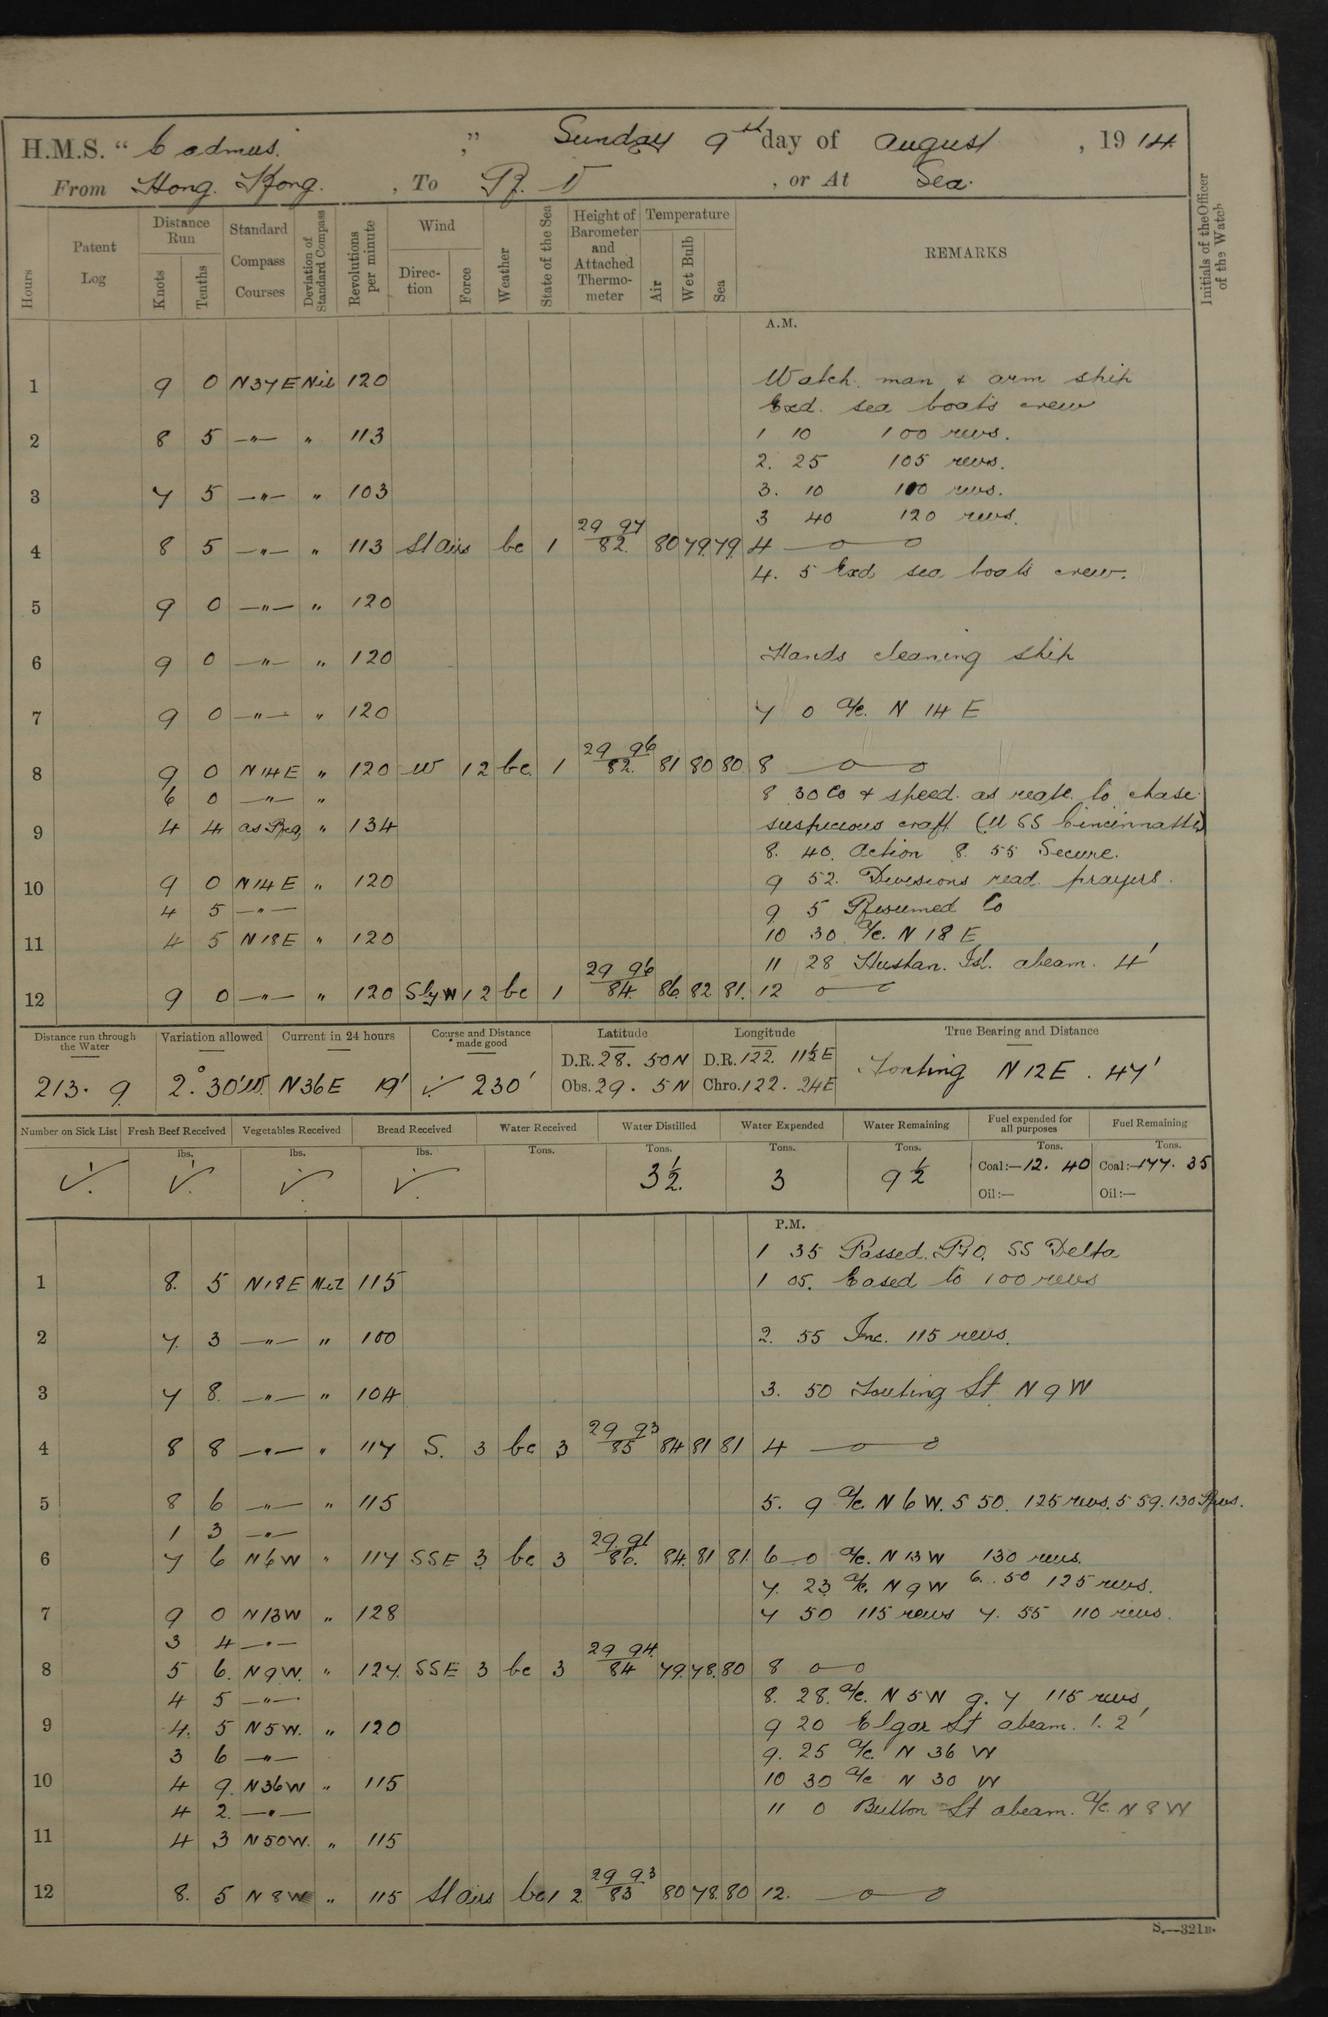 H.M.S. " Cadmus. ," Sunday 9th day of August , 1914
From Hong Kong. , To R. V , or At Sea.
Hours Patent Log Distance Run Knots Tenths Standard Compass Courses Deviation of Standard Compass Revolutions per minute Wind Direction Force Weather State of the Sea Height of Barometer and Attached Thermometer Temperature Air Wet Bulb Sea REMARKS Initials of the Officer of the Watch
A.M.
1 9 0 N37E Nil 120 Watch. man & arm ship
Exd. sea boats crew
2 8 5 —"— " 113 1 10 100 revs.
2. 25 105 revs.
3 7 5 —"— " 103 3. 10 100 revs.
3 40 120 revs.
4 8 5 —"— " 113 St airs bc 1 29 97 82. 80 79. 79. 4 —o—o
4. 5 Exd sea boats crew.
5 9 0 —"— " 120
6 9 0 —"— " 120 Hands cleaning ship
7 9 0 —"— " 120 7 0 a/c. N 14 E
8 9 0 N14E " 120 W 1 2 bc. 1 29 96 82. 81 80 80. 8 —o—o
6 0 —"— " 8 30 Co & speed. as reqte. to chase
9 4 4 as Req " 134 suspicious craft (USS Cincinnatti)
8. 40. Action 8. 55 Secure.
10 9 0 N14E " 120 9 52. Divisions read prayers.
4 5 —"— 9 5 Resumed Co
11 4 5 N18E " 120 10 30 a/c. N 18 E
11 28 Hushan. Isl. abeam. 4'
12 9 0 —"— " 120 Sly W 1 2 bc 1 29 96 84. 86. 82 81. 12 o—o
Distance run through the Water Variation allowed Current in 24 hours Course and Distance made good Latitude Longitude True Bearing and Distance
213. 9 2° 30'W. N36E 19' ✓ 230' D.R. 28. 50 N D.R. 122. 11½ E Tonting N 12 E. 47'
Obs. 29. 5 N Chro. 122. 24 E
Number on Sick List Fresh Beef Received Vegetables Received Bread Received Water Received Water Distilled Water Expended Water Remaining Fuel expended for all purposes Fuel Remaining
lbs. lbs. lbs. Tons. Tons. Tons. Tons. Tons. Tons.
✓ ✓ ✓ ✓ 3½. 3 9½ Coal:—12. 40 Coal:—177. 35
Oil:— Oil:—
P.M.
1 35 Passed. P&O. SS Delta
1 8. 5 N18E Nil 115 1 05. Eased to 100 revs
2 7. 3 —"— " 100 2. 55 Inc. 115 revs.
3 7 8. —"— " 104 3. 50 Tonting St N 9 W
4 8 8 —"— " 117 S. 3 bc 3 29 93 85 84 81 81 4 —o—o
5 8 6 —"— " 115 5. 9 a/c. N 6 W. 5 50. 125 revs. 5 59. 130 Revs.
1 3 —"—
6 7 6 N6W " 117 SSE 3 bc 3 29 91 86. 84. 81 81. 6—0 a/c. N 13 W 130 revs.
7. 23 a/c. N 9 W 6. 50 125 revs.
7 9 0 N13W " 128 7 50 115 revs 7. 55 110 revs.
3 4 —"—
8 5 6. N9W. " 127. SSE 3 bc 3 29 94. 84 79. 78. 80 8 o—o
4 5 —"— 8. 28. a/c. N 5 W 9. 7 115 revs
9 4. 5 N5W. " 120 9 20 Elgar St abeam. 1. 2'
3 6 —"— 9. 25 a/c. N 36 W
10 4 9. N36W " 115 10 30 a/c N 30 W
4 2. —"— 11 0 Button St abeam. a/c. N 8 W
11 4 3 N50W. " 115
12 8. 5 N8W " 115 St airs bc 1 2 29 93 83 80 78. 80 12. —o—o
S.—321B.